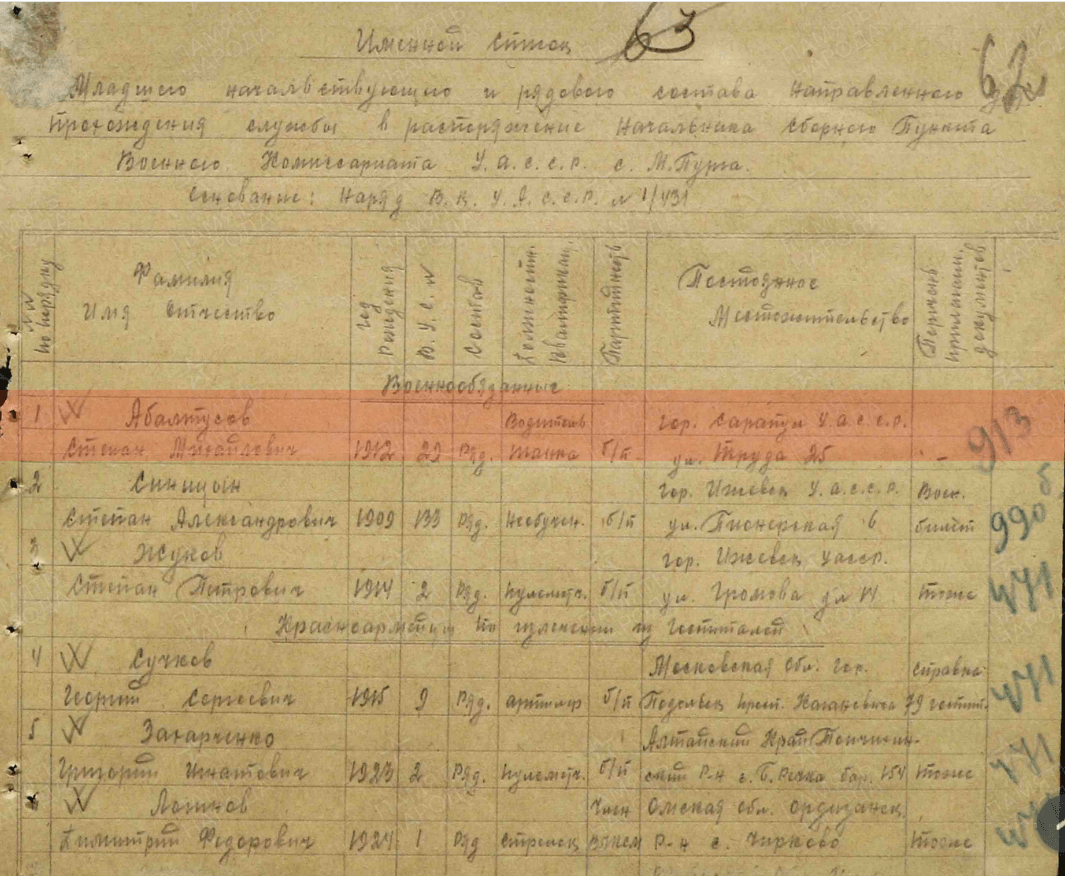 Именной список 63
62
Младшего начальствующего и рядового состава направленного для
прохождения службы в распоряжение Начальника Сборного Пункта
Военного Комиссариата У.А.С.С.Р. с. М.Пурга.
Основание: Наряд В.К.У.А.С.С.Р. № 1/431
№№ по порядку
Фамилия Имя Отчество
Год рождения
В.У.С. №
Состав
Должностн. квалификац.
Партийность
Постоянное Местожительство
Перечень прилагаем. документов
Военнообязанные
1 Абалтусов Водитель гор. Сарапул У.А.С.С.Р. 913
Степан Михайлович 1912 29 Ряд. танка б/п ул. Труда 25 -
2 Синицын гор. Ижевск У.А.С.С.Р. Воен. б
Степан Александрович 1909 133 Ряд. Необучен. б/п ул. Пионерская 6 билет 990
3 Жуков гор. Ижевск УАССР.
Степан Петрович 1914 2 Ряд. пулеметч. б/п ул. Громова тоже 471
Красноармейцы по излечении из госпиталей
4 Сучков Московская обл. гор. справка
Георгий Сергеевич 1915 9 Ряд. артиллер б/п Подольск Кагановича 79 госпит. 471
5 Захарченко Алтайский Край
Григорий Игнатович 1923 2 Ряд. пулеметч. б/п р-н с. Б. Речка 154 тоже 471
Член Омская обл.
Димитрий Федорович 1924 1 Ряд стрелок ВЛКСМ р-н с. Чирково тоже